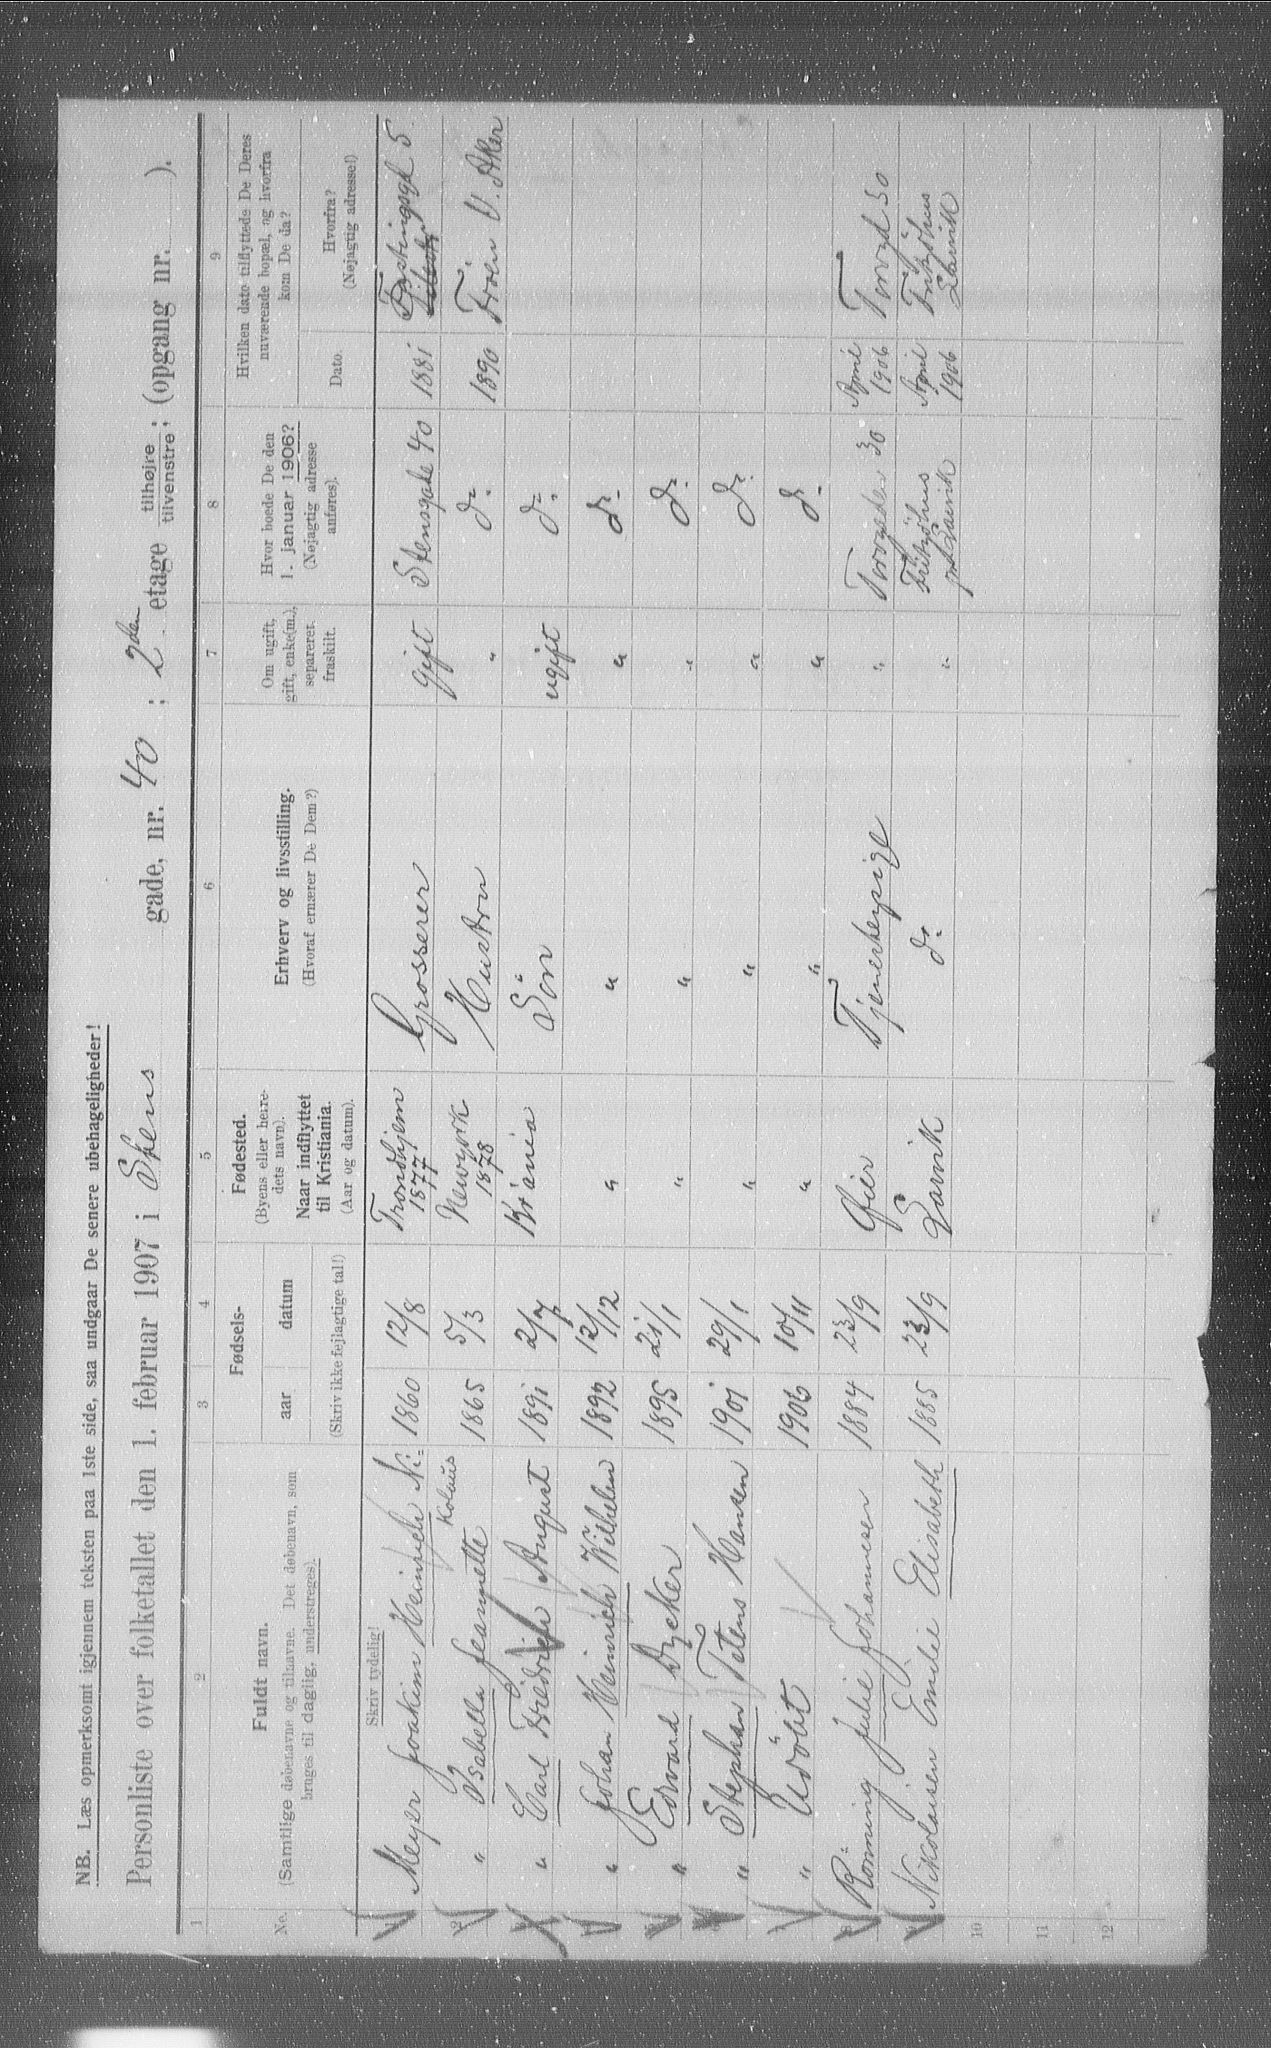 NB. Læs opmerksomt igjennem teksten paa 1ste side, saa undgaar De senere ubehageligheder!
Personliste over folketallet den 1. februar 1907 i Stens gade, nr. 40 ; 2den etage tilhøjre/tilvenstre, ; (opgang nr. ).
1 2 3 4 5 6 7 8 9
No.
Fuldt navn.
(Samtlige døbenavne og tilnavne. Det døbenavn, som
bruges til daglig, understreges).
Fødsels-
aar datum
(Skriv ikke fejlagtige tal!)
Fødested.
(Byens eller herre-
dets navn).
Naar indflyttet
til Kristiania.
(Aar og datum).
Erhverv og livsstilling.
(Hvoraf ernærer De Dem?)
Om ugift,
gift, enke(m.),
separeret,
fraskilt.
Hvor boede De den
1. januar 1906?
(Nøjagtig adresse
anføres).
Hvilken dato tilflyttede De Deres
nuværende bopæl, og hvorfra
kom De da?
Dato.
Hvorfra?
(Nøjagtig adresse!)
Skriv tydelig!
Meyer Joakim Heinrich Ni=kolaus 1860 12/8 Trondhjem 1877 Grosserer gift Stensgade 40 1881 5
2 " Isabella Jeannette 1865 5/3 Newyork 1878 Hustru " do. 1890 Frøen V. Aker
" Carl Fredrich August 1891 2/7 Kr.ania Sön ugift do.
" Johan Heinrich Wilhelm 1892 12/12 " " " do.
" Edvard Dycker 1895 21/1 " " " do.
" Stephan Tetens Hansen 1901 29/1 " " " do.
" Udöbt 1906 10/11 " " " do.
8 Rönning Julie Johannesen 1884 23/9 Øier Tjenestepige " 30 April 1906 30
Nikolaisen Emilie Elisabeth 1885 23/9 Larvik do. " Fritzöhus Larvik April 1906 Fritzöhus Larvik
10
11
12